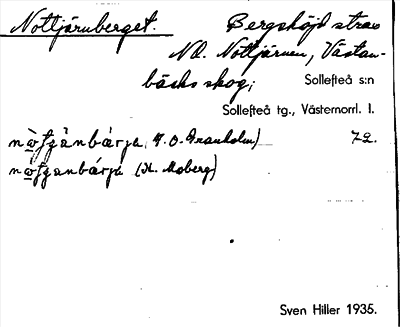 Nottjärnberget. Bergshöjd strax
NO. Nottjärnen, Västan-
bäcks skog; Sollefteå s:n
Sollefteå tg., Västernorrl. l.
(F. O. Granholm) 72.
(H. Moberg)
Sven Hiller 1935.